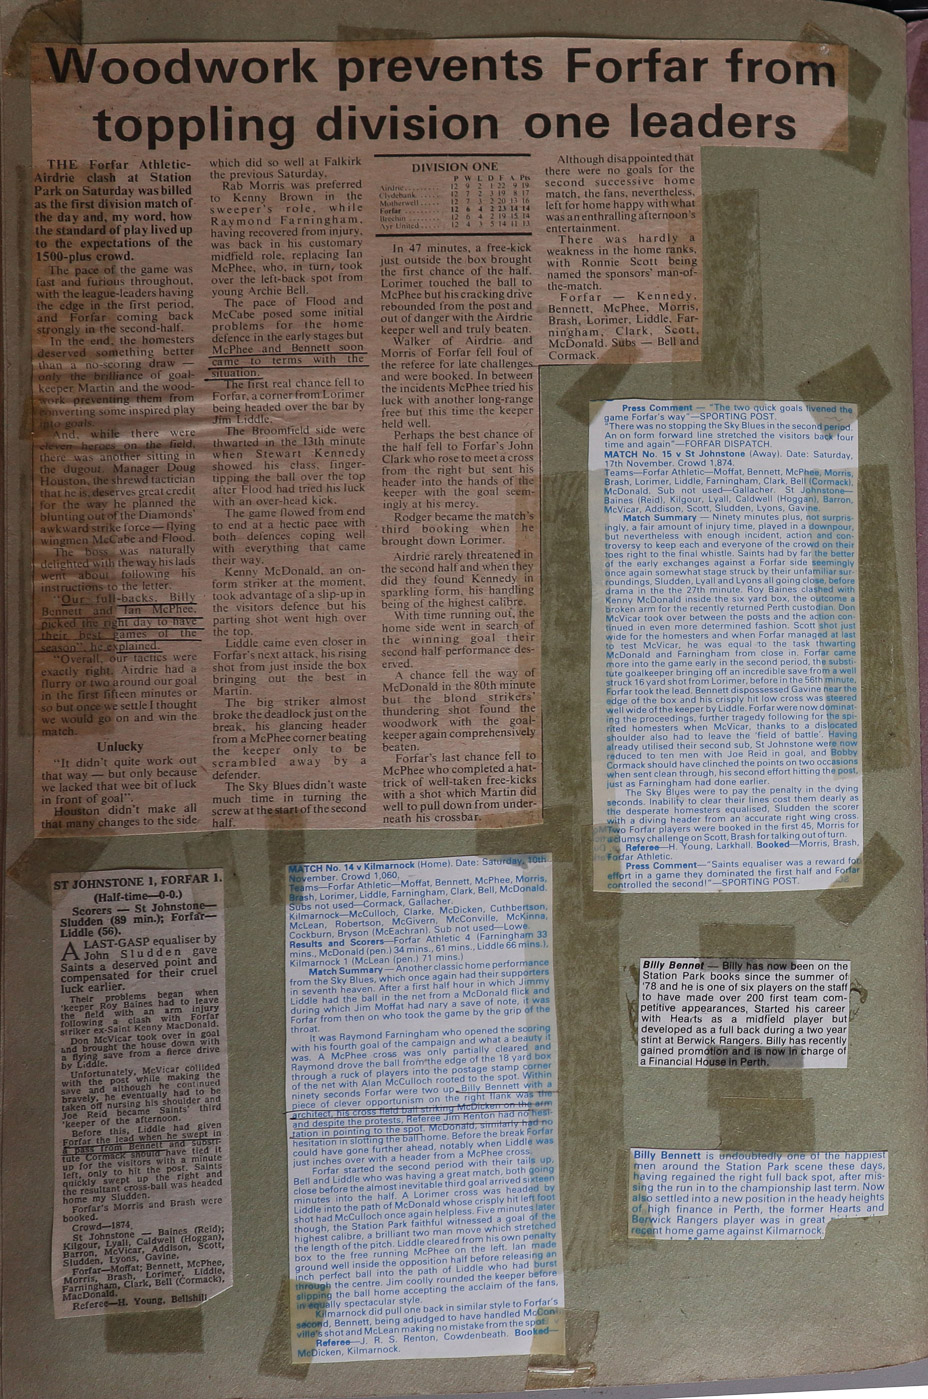 Woodwork prevents Forfar from
toppling division one leaders
THE Forfar Athletic-
Airdrie clash at Station
Park on Saturday was billed
as the first division match of
the day and, my word, how
the standard of play lived up
to the expectations of the
1500-plus crowd.
The pace of the game was
fast and furious throughout,
with the league-leaders having
the edge in the first period,
and Forfar coming back
strongly in the second-half.
In the end, the homesters
deserved something better
than a no-scoring draw —
only the brilliance of goal-
keeper Martin and the wood-
work preventing them from
converting some inspired play
into goals.
And, while there were
eleven heroes on the field,
there was another sitting in
the dugout. Manager Doug
Houston, the shrewd tactician
that he is, deserves great credit
for the way he planned the
blunting out of the Diamonds'
awkward strike force — flying
wingmen McCabe and Flood.
The boss was naturally
delighted with the way his lads
went about following his
instructions to the letter.
"Our full-backs, Billy
Bennett and Ian McPhee,
picked the right day to have
their best games of the
season", he explained.
"Overall, our tactics were
exactly right. Airdrie had a
flurry or two around our goal
in the first fifteen minutes or
so but once we settle I thought
we would go on and win the
match.
Unlucky
"It didn't quite work out
that way — but only because
we lacked that wee bit of luck
in front of goal".
Houston didn't make all
that many changes to the side
which did so well at Falkirk
the previous Saturday.
Rab Morris was preferred
to Kenny Brown in the
sweeper's role, while
Raymond Farningham,
having recovered from injury,
was back in his customary
midfield role, replacing Ian
McPhee, who, in turn, took
over the left-back spot from
young Archie Bell.
The pace of Flood and
McCabe posed some initial
problems for the home
defence in the early stages but
McPhee and Bennett soon
came to terms with the
situation.
The first real chance fell to
Forfar, a corner from Lorimer
being headed over the bar by
Jim Liddle.
The Broomfield side were
thwarted in the 13th minute
when Stewart Kennedy
showed his class, finger-
tipping the ball over the top
after Flood had tried his luck
with an over-head kick.
The game flowed from end
to end at a hectic pace with
both defences coping well
with everything that came
their way.
Kenny McDonald, an on-
form striker at the moment,
took advantage of a slip-up in
the visitors defence but his
parting shot went high over
the top.
Liddle came even closer in
Forfar's next attack, his rising
shot from just inside the box
bringing out the best in
Martin.
The big striker almost
broke the deadlock just on the
break, his glancing header
from a McPhee corner beating
the keeper only to be
scrambled away by a
defender.
The Sky Blues didn't waste
much time in turning the
screw at the start of the second
half.
DIVISION ONE
P W L D F A Pts
Airdrie 12 9 2 1 22 9 19
Clydebank 12 7 2 3 19 8 17
Motherwell 12 7 3 2 20 13 16
Forfar 12 6 4 2 23 14 14
Brechin 12 6 4 2 19 15 14
Ayr United 12 4 3 5 14 11 13
In 47 minutes, a free-kick
just outside the box brought
the first chance of the half.
Lorimer touched the ball to
McPhee but his cracking drive
rebounded from the post and
out of danger with the Airdrie
keeper well and truly beaten.
Walker of Airdrie and
Morris of Forfar fell foul of
the referee for late challenges
and were booked. In between
the incidents McPhee tried his
luck with another long-range
free but this time the keeper
held well.
Perhaps the best chance of
the half fell to Forfar's John
Clark who rose to meet a cross
from the right but sent his
header into the hands of the
keeper with the goal seem-
ingly at his mercy.
Rodger became the match's
third booking when he
brought down Lorimer.
Airdrie rarely threatened in
the second half and when they
did they found Kennedy in
sparkling form, his handling
being of the highest calibre.
With time running out, the
home side went in search of
the winning goal their
second half performance des-
erved.
A chance fell the way of
McDonald in the 80th minute
but the blond strikers'
thundering shot found the
woodwork with the goal-
keeper again comprehensively
beaten.
Forfar's last chance fell to
McPhee who completed a hat-
trick of well-taken free-kicks
with a shot which Martin did
well to pull down from under-
neath his crossbar.
Although disappointed that
there were no goals for the
second successive home
match, the fans, nevertheless,
left for home happy with what
was an enthralling afternoon's
entertainment.
There was hardly a
weakness in the home ranks,
with Ronnie Scott being
named the sponsors' man-of-
the-match.
Forfar — Kennedy,
Bennett, McPhee, Morris,
Brash, Lorimer, Liddle, Far-
ningham, Clark, Scott,
McDonald. Subs — Bell and
Cormack.
Press Comment — "The two quick goals livened the
game Forfar's way"—SPORTING POST.
"There was no stopping the Sky Blues in the second period.
An on form forward line stretched the visitors back four
time and again"—FORFAR DISPATCH.
MATCH No. 15 v St Johnstone (Away). Date: Saturday,
17th November. Crowd 1,874.
Teams—Forfar Athletic—Moffat, Bennett, McPhee, Morris,
Brash, Lorimer, Liddle, Farningham, Clark, Bell (Cormack),
McDonald. Sub not used—Gallacher. St Johnstone—
Baines (Reid), Kilgour, Lyall, Caldwell (Hoggan), Barron,
McVicar, Addison, Scott, Sludden, Lyons, Gavine.
Match Summary — Ninety minutes plus, not surpris-
ingly, a fair amount of injury time, played in a downpour,
but nevertheless with enough incident, action and con-
troversy to keep each and everyone of the crowd on their
toes right to the final whistle. Saints had by far the better
of the early exchanges against a Forfar side seemingly
once again somewhat stage struck by their unfamiliar sur-
roundings, Sludden, Lyall and Lyons all going close, before
drama in the the 27th minute. Roy Baines clashed with
Kenny McDonald inside the six yard box, the outcome a
broken arm for the recently returned Perth custodian. Don
McVicar took over between the posts and the action con-
tinued in even more determined fashion. Scott shot just
wide for the homesters and when Forfar managed at last
to test McVicar, he was equal to the task thwarting
McDonald and Farningham from close in. Forfar came
more into the game early in the second period, the substi-
tute goalkeeper bringing off an incredible save from a well
struck 16 yard shot from Lorimer, before in the 56th minute,
Forfar took the lead. Bennett dispossessed Gavine near the
edge of the box and his crisply hit low cross was steered
well wide of the keeper by Liddle. Forfar were now dominat-
ing the proceedings, further tragedy following for the spi-
rited homesters when McVicar, thanks to a dislocated
shoulder also had to leave the 'field of battle'. Having
already utilised their second sub, St Johnstone were now
reduced to ten men with Joe Reid in goal, and Bobby
Cormack should have clinched the points on two occasions
when sent clean through, his second effort hitting the post,
just as Farningham had done earlier.
The Sky Blues were to pay the penalty in the dying
seconds. Inability to clear their lines cost them dearly as
the desperate homesters equalised, Sludden the scorer
with a diving header from an accurate right wing cross.
Two Forfar players were booked in the first 45, Morris for
a clumsy challenge on Scott, Brash for talking out of turn.
Referee—H. Young, Larkhall. Booked—Morris, Brash,
Forfar Athletic.
Press Comment—"Saints equaliser was a reward for
effort in a game they dominated the first half and Forfar
controlled the second!"—SPORTING POST.
ST JOHNSTONE 1, FORFAR 1.
(Half-time—0-0.)
Scorers — St Johnstone—
Sludden (89 min.); Forfar—
Liddle (56).
A LAST-GASP equaliser by
John Sludden gave
Saints a deserved point and
compensated for their cruel
luck earlier.
Their problems began when
'keeper Roy Baines had to leave
the field with an arm injury
following a clash with Forfar
striker ex-Saint Kenny MacDonald.
Don McVicar took over in goal
and brought the house down with
a flying save from a fierce drive
by Liddle.
Unfortunately, McVicar collided
with the post while making the
save and although he continued
bravely, he eventually had to be
taken off nursing his shoulder and
Joe Reid became Saints' third
'keeper of the afternoon.
Before this, Liddle had given
Forfar the lead when he swept in
a pass from Bennett and substi-
tute Cormack should have tied it
up for the visitors with a minute
left, only to hit the post. Saints
quickly swept up the right and
the resultant cross-ball was headed
home my Sludden.
Forfar's Morris and Brash were
booked.
Crowd—1874.
St Johnstone — Baines (Reid);
Kilgour, Lyall, Caldwell (Hoggan),
Barron, McVicar, Addison, Scott,
Sludden, Lyons, Gavine.
Forfar—Moffat; Bennett, McPhee,
Morris, Brash, Lorimer, Liddle,
Farningham, Clark, Bell (Cormack),
MacDonald.
Referee—H. Young, Bellshill
MATCH No. 14 v Kilmarnock (Home). Date: Saturday, 10th
November. Crowd 1,060.
Teams—Forfar Athletic—Moffat, Bennett, McPhee, Morris,
Brash, Lorimer, Liddle, Farningham, Clark, Bell, McDonald.
Subs not used—Cormack, Gallacher.
Kilmarnock—McCulloch, Clarke, McDicken, Cuthbertson,
McLean, Robertson, McGivern, McConville, McKinna,
Cockburn, Bryson (McEachran). Sub not used—Lowe.
Results and Scorers—Forfar Athletic 4 (Farningham 33
mins., McDonald (pen.) 34 mins., 61 mins., Liddle 66 mins.).
Kilmarnock 1 (McLean (pen.) 71 mins).
Match Summary—Another classic home performance
from the Sky Blues, which once again had their supporters
in seventh heaven. After a first half hour in which Jimmy
Liddle had the ball in the net from a McDonald flick and
during which Jim Moffat had nary a save of note, it was
Forfar from then on who took the game by the grip of the
throat.
It was Raymond Farningham who opened the scoring
with his fourth goal of the campaign and what a beauty it
was. A McPhee cross was only partially cleared and
Raymond drove the ball from the edge of the 18 yard box
through a ruck of players into the postage stamp corner
of the net with Alan McCulloch rooted to the spot. Within
ninety seconds Forfar were two up, Billy Bennett with a
piece of clever opportunism on the right flank was the
architect, his cross field ball striking McDicken on the arm
and despite the protests, Referee Jim Renton had no hesi-
tation in pointing to the spot. McDonald, similarly had no
hesitation in slotting the ball home. Before the break Forfar
could have gone further ahead, notably when Liddle was
just inches over with a header from a McPhee cross.
Forfar started the second period with their tails up,
Bell and Liddle who was having a great match, both going
close before the almost inevitable third goal arrived sixteen
minutes into the half. A Lorimer cross was headed by
Liddle into the path of McDonald whose crisply hit left foot
shot had McCulloch once again helpless. Five minutes later
though, the Station Park faithful witnessed a goal of the
highest calibre, a brilliant two man move which stretched
the length of the pitch. Liddle cleared from his own penalty
box to the free running McPhee on the left. Ian made
ground well inside the opposition half before releasing an
inch perfect ball into the path of Liddle who had burst
through the centre. Jim coolly rounded the keeper before
slipping the ball home accepting the acclaim of the fans,
in equally spectacular style.
Kilmarnock did pull one back in similar style to Forfar's
second, Bennett, being adjudged to have handled McCon-
ville's shot and McLean making no mistake from the spot.
Referee—J. R. S. Renton, Cowdenbeath. Booked—
McDicken, Kilmarnock.
Billy Bennet — Billy has now been on the
Station Park books since the summer of
'78 and he is one of six players on the staff
to have made over 200 first team com-
petitive appearances, Started his career
with Hearts as a midfield player but
developed as a full back during a two year
stint at Berwick Rangers. Billy has recently
gained promotion and is now in charge of
a Financial House in Perth.
Billy Bennett is undoubtedly one of the happiest
men around the Station Park scene these days,
having regained the right full back spot, after mis-
sing the run in to the championship last term. Now
also settled into a new position in the heady heights
of high finance in Perth, the former Hearts and
Berwick Rangers player was in great
recent home game against Kilmarnock.